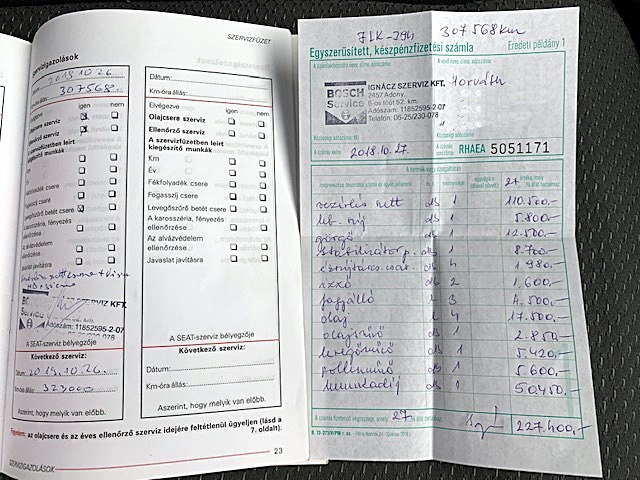 SZERVIZFÜZET
Szervizigazolások
2018.10.26.
Km-óra állás: 307568.
igen nem
Olajcsere szerviz
Ellenőrző szerviz
A szervizfüzetben leírt
kiegészítő munkák
Fékfolyadék csere
Fogasszíj csere
Levegőszűrő betét csere
A karosszéria, fényezés
ellenőrzése
Az alvázvédelem
ellenőrzése
Javaslat javításra
BOSCH
Service
Adószám: 11852595-2-07
A SEAT-szerviz bélyegzője
Következő szerviz:
Dátum: 2019.10.26.
Km-óra állás: 323000
Aszerint, hogy melyik van előbb.
Dátum:
Km-óra állás:
Elvégezve igen nem
Olajcsere szerviz
Ellenőrző szerviz
A szervizfüzetben leírt
kiegészítő munkák
Km
Év
Fékfolyadék csere
Fogasszíj csere
Levegőszűrő betét csere
A karosszéria, fényezés
ellenőrzése
Az alvázvédelem
ellenőrzése
Javaslat javításra
A SEAT-szerviz bélyegzője
Következő szerviz:
Dátum:
Km-óra állás:
Aszerint, hogy melyik van előbb.
Figyelem: az olajcsere és az éves ellenőrző szerviz idejére feltétlenül ügyeljen (lásd a
7. oldalt).
23
SZERVIZIGAZOLÁSOK
307568km
Egyszerűsített, készpénzfizetési számla Eredeti példány 1
BOSCH
Service
IGNÁCZ SZERVIZ KFT.
2457 Adony,
6-os főút 52. km.
Adószám: 11852595-2-07
Telefon: 06-25/230-078
Horváth
A számla kelte: 2018.10.27.
RHAEA 5051171
A termék vagy szolgáltatás
vezérlés szett db 1 110.500.-
db 1 5.800.-
görgő db 1 12.500.-
stabilizátor p. db 1 8.700.-
db 4 1.980.-
izzó db 2 1.600.-
fagyálló l 3 4.500.-
olaj l 4 17.500.-
olajszűrő db 1 2.850.-
levegőszűrő db 1 5.420.-
pollenszűrő db 1 5.600.-
munkadíj 50.450.-
27
227.400.-